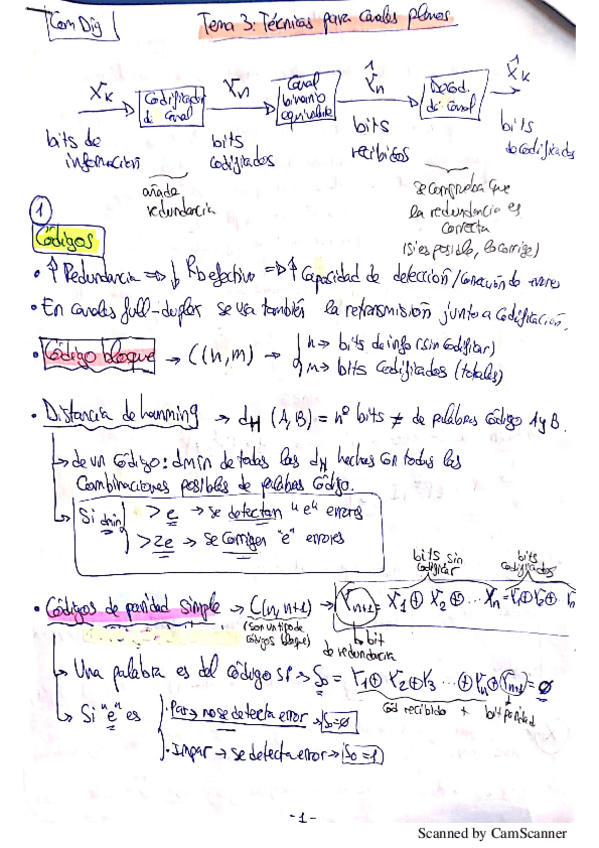 Com Dig
Tema 3: Técnicas para canales planos
Xk
Codificador de canal
Yn
Canal binario equivalente
Ŷn
Decod. de canal
X̂k
bits de información
bits codificados
bits recibidos
bits decodificados
añade redundancia
se comprueba que
la redundancia es
correcta
(si es posible, lo corrige)
1
Códigos
• ↑ Redundancia ⇒ ↓ Rb efectivo ⇒ ↑ Capacidad de detección/corrección de errores
• En canales full-duplex se usa también la retransmisión junto a codificación.
• Código bloque → C(n,m) → n → bits de info (sin codificar)
m → bits codificados (totales)
• Distancia de hamming → dH (A,B) = nº bits ≠ de palabras código A y B.
de un código: dmin de todas las dH hechas con todas las
combinaciones posibles de palabras código.
Si dmin > e → se detectan "e" errores
> 2e → se corrigen "e" errores
bits sin codificar
bits codificados
• Códigos de paridad simple → C(n, n+1) → Yn+1 = X1 ⊕ X2 ⊕ ... Xn = Y1 ⊕ Y2 ⊕ Yn
(son un tipo de códigos bloque)
bit
de redundancia
Una palabra es del código si → S0 = Y1 ⊕ Y2 ⊕ Y3 ... ⊕ Yn ⊕ Yn+1 = 0
cód recibido + bit paridad
Si "e" es
• Par → no se detecta error → S0=0
• Impar → se detecta error → S0=1
-1-
Scanned by CamScanner